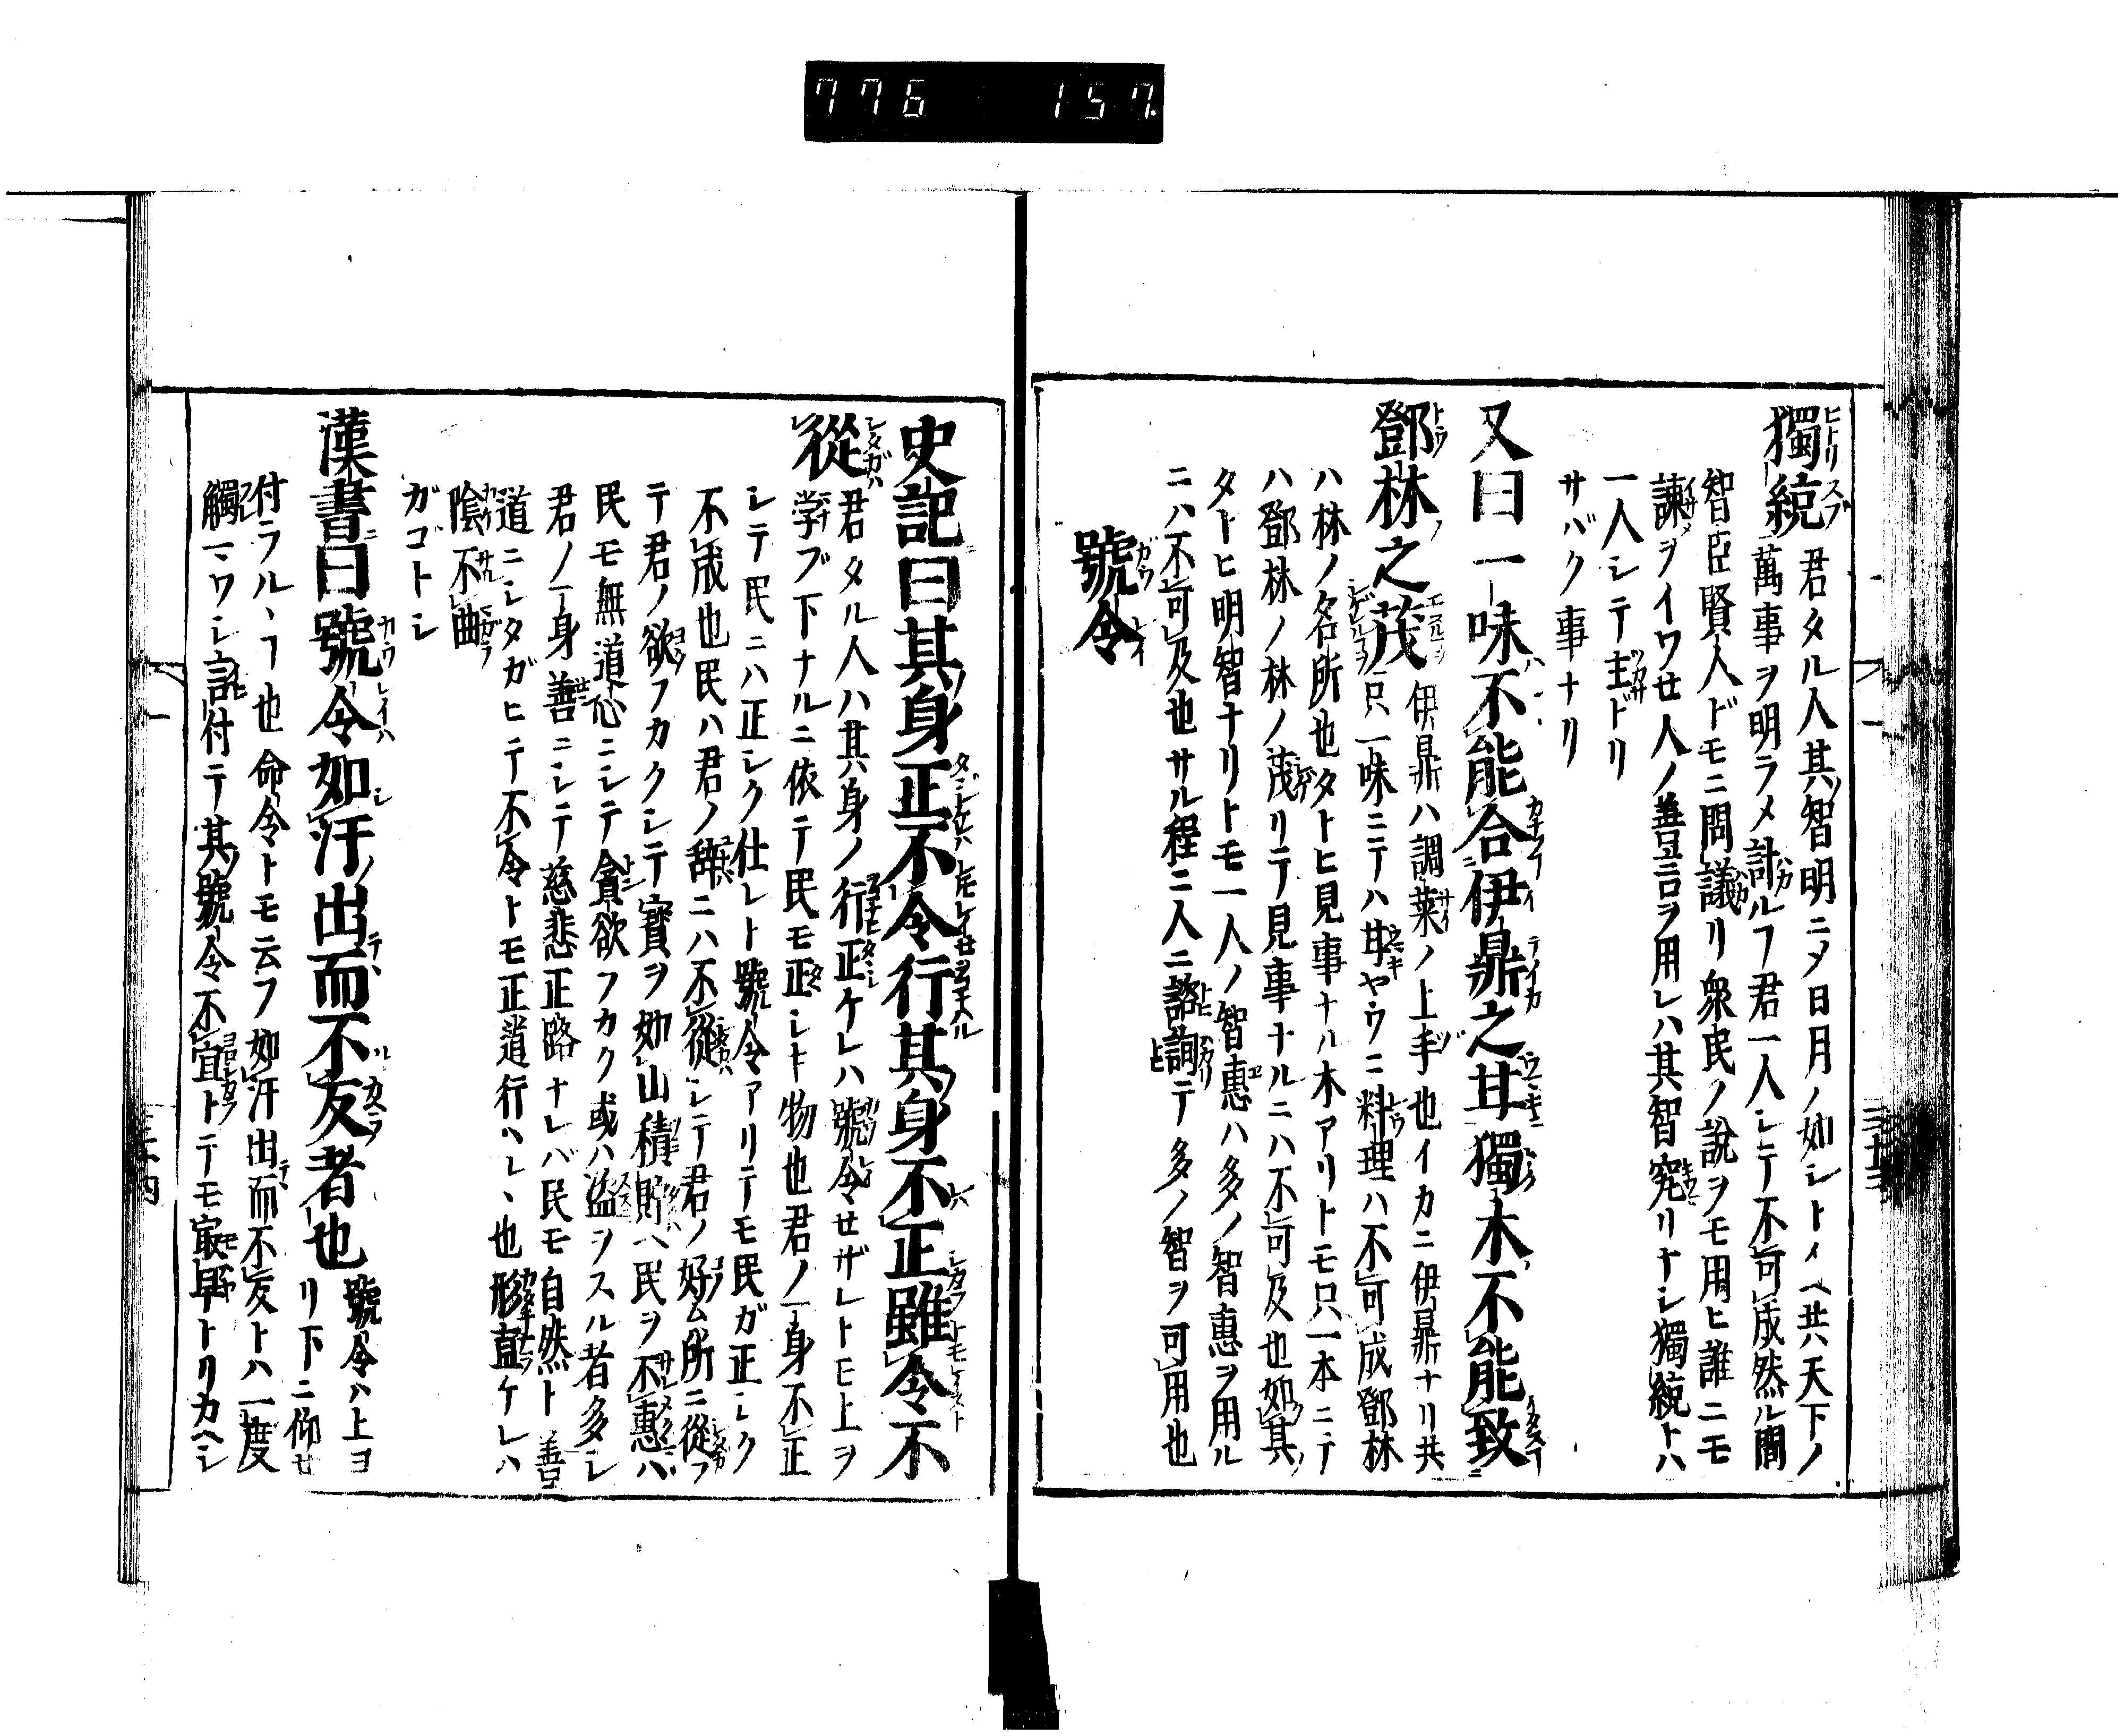 776 157
獨統 君タル人其智明ニメ日月ノ如シトイヘ共天下ノ
萬事ヲ明ラメ計ルヿ君一人シテ不可成然ル間
智臣賢人ドモニ問議リ衆民ノ說ヲモ用ヒ誰ニモ
諫ヲイワせ人ノ善言ヲ用レハ其智究リナシ獨統トハ
一人シテ主ドリ
サバク事ナリ
又曰一味不能合伊鼎之甘獨木不能致
鄧林之茂 伊鼎ハ調菜ノ上手也イカニ伊鼎ナリ共
只一味ニテハ甘ヤウニ料理ハ不可成鄧林
ハ林ノ名所也タトヒ見事ナル木アリトモ只一本ニテ
ハ鄧林ノ林ノ茂リテ見事ナルニハ不可及也如其
タトヒ明智ナリトモ一人ノ智惠ハ多ノ智惠ヲ用ル
ニハ不可及也サル程ニ人ニ諮詢テ多ノ智ヲ可用也
號令
史記曰其身正不令行其身不正雖令不
從 君タル人ハ其身ノ行正ケレハ號令せザレトモ上ヲ
学ブ下ナルニ依テ民モ正シキ物也君ノ一身不正
シテ民ニハ正シク仕レト號令アリテモ民ガ正シク
不成也民ハ君ノ辞ニハ不從シテ君ノ好ム所ニ從フ
テ君ノ欲フカクシテ寳ヲ如山積貯ヘ民ヲ不惠バ
民モ無道心ニシテ貪欲フカク或ハ盗ヲスル者多シ
君ノ一身善ニシテ慈悲正路ナレバ民モ自然ト善
道ニシタガヒテ不令トモ正道行ハレ、也形直ケレハ
陰不曲
ガゴトシ
漢書曰號令如汗出而不反者也 號令ハ上ヨ
リ下ニ仰せ
付ラル、ヿ也命令トモ云フ如汗出而不反トハ一度
觸マワシ 付テ其號令不宜トテモ寂早トリカヘシ